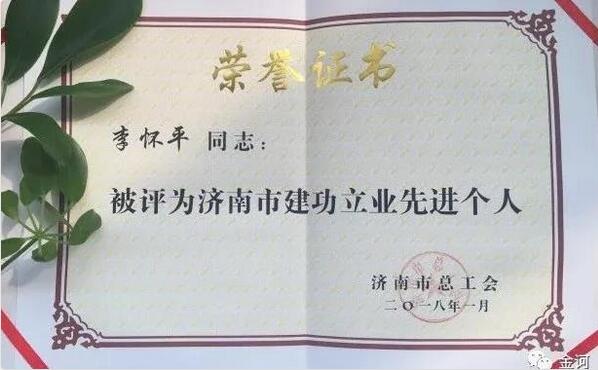 荣誉证书
李怀平 同志：
被评为济南市建功立业先进个人
济南市总工会
二〇一八年一月
金河